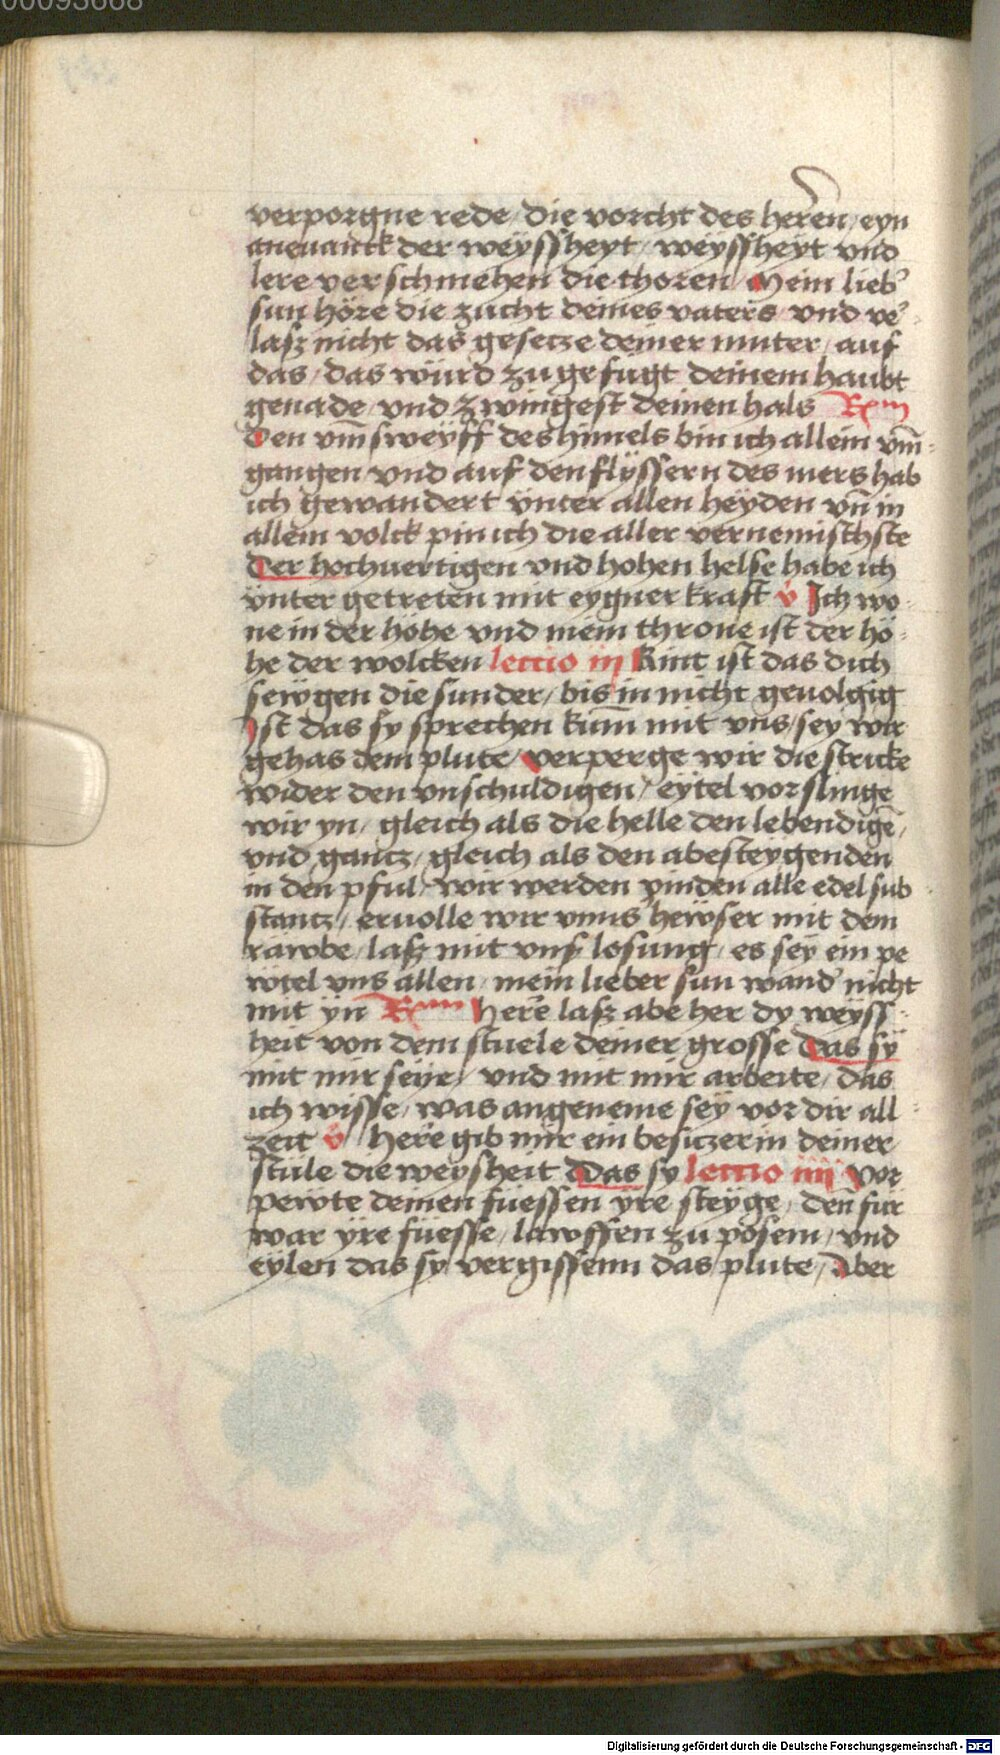 00093668
verporgne rede / die vorcht des herren / eyn
anevanck der weÿssheyt / weÿssheÿt vnd
lere verschmehen die thoren / Mein lieb'
sun höre die zucht deines vaters / vnd v'e
lasz nicht das gesecze deiner muter / auf
das / das würd zu gefugt deinem haubt
genade / vnd zwingest deinen hals Rm
Den vm̄sweÿff des himels bin ich allein vm̄
gangen vnd auf den flÿssern des mers hab
ich gewandert vnter allen heÿden vn̄ in
allem volck pin ich die aller vernemischste
Der hochuertigen vnd hohen helse habe ich
vnter getreten mit eygner kraft v̇ Ich wo
ne in der höhe vnd mein throne ist der hö
he der wolcken lectio iij Kint ist das dich
sewgen die sunder / bis in nicht geuolgig
Ist das sy sprechen kum̄ mit vns / sey wir
gehas dem plute / verperge wir die stricke
wider den vnschuldigen / eÿtel vorslinge
wir yn / gleich als die helle den lebendigē /
vnd gancz / gleich als den abesteygenden
in den pful / wir werden vinden alle edel sub
stancz / ervolle wir vnns hewser mit dem
rawbe / lasz mit vns losung / es sey ein pe
wtel vns allen / mein lieber sun wand' nicht
mit ÿn Rm Herre lasz abe her dy weÿss
heit von dem stuele deiner grosse Das sÿ
mit mir seÿe / vnd mit mir arbeite / das
ich wisse / was angeneme seÿ vor dir all
zeit v̇ Herre gib mir ein besiczerin deiner
stüle die weysheit Das sy lectio iiij Vor
pewte deinen füessen yre steÿge / den̄ für
war ÿre füesse / lawffen zu pösem / vnd
eÿlen das sy vergissenn das plute / Aber
Digitalisierung gefördert durch die Deutsche Forschungsgemeinschaft - DFG